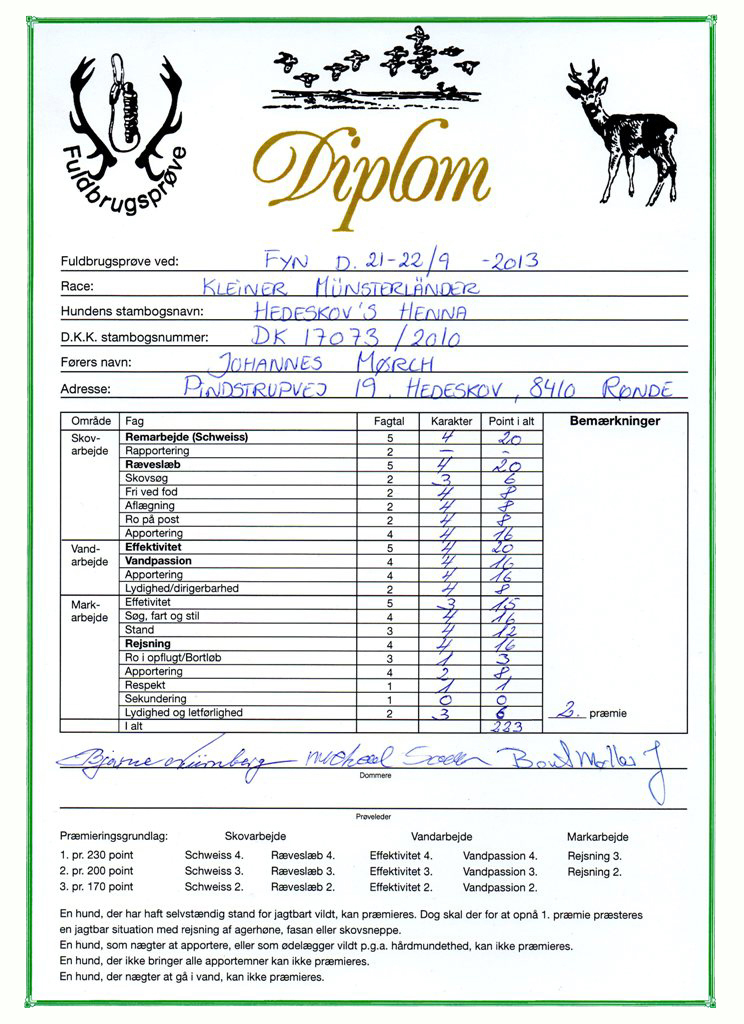 Fuldbrugsprøve
Diplom
Fuldbrugsprøve ved: FYN D. 21-22/9 -2013
Race: KLEINER MÜNSTERLÄNDER
Hundens stambogsnavn: HEDESKOV'S HENNA
D.K.K. stambogsnummer: DK 17073/2010
Førers navn: JOHANNES MØRCH
Adresse: PINDSTRUPVEJ 19, HEDESKOV, 8410 RØNDE
Område Fag Fagtal Karakter Point i alt Bemærkninger
Skov- Remarbejde (Schweiss) 5 4 20
arbejde Rapportering 2 – -
Ræveslæb 5 4 20
Skovsøg 2 3 6
Fri ved fod 2 4 8
Aflægning 2 4 8
Ro på post 2 4 8
Apportering 4 4 16
Vand- Effektivitet 5 4 20
arbejde Vandpassion 4 4 16
Apportering 4 4 16
Lydighed/dirigerbarhed 2 4 8
Mark- Effetivitet 5 3 15
arbejde Søg, fart og stil 4 4 16
Stand 3 4 12
Rejsning 4 4 16
Ro i opflugt/Bortløb 3 1 3
Apportering 4 2 8
Respekt 1 1 1
Sekundering 1 0 0
Lydighed og letførlighed 2 3 6 2. præmie
I alt 223
Bjarne Nürnberg
Dommere
Prøveleder
Præmieringsgrundlag: Skovarbejde Vandarbejde Markarbejde
1. pr. 230 point Schweiss 4. Ræveslæb 4. Effektivitet 4. Vandpassion 4. Rejsning 3.
2. pr. 200 point Schweiss 3. Ræveslæb 3. Effektivitet 3. Vandpassion 3. Rejsning 2.
3. pr. 170 point Schweiss 2. Ræveslæb 2. Effektivitet 2. Vandpassion 2.
En hund, der har haft selvstændig stand for jagtbart vildt, kan præmieres. Dog skal der for at opnå 1. præmie præsteres
en jagtbar situation med rejsning af agerhøne, fasan eller skovsneppe.
En hund, som nægter at apportere, eller som ødelægger vildt p.g.a. hårdmundethed, kan ikke præmieres.
En hund, der ikke bringer alle apportemner kan ikke præmieres.
En hund, der nægter at gå i vand, kan ikke præmieres.